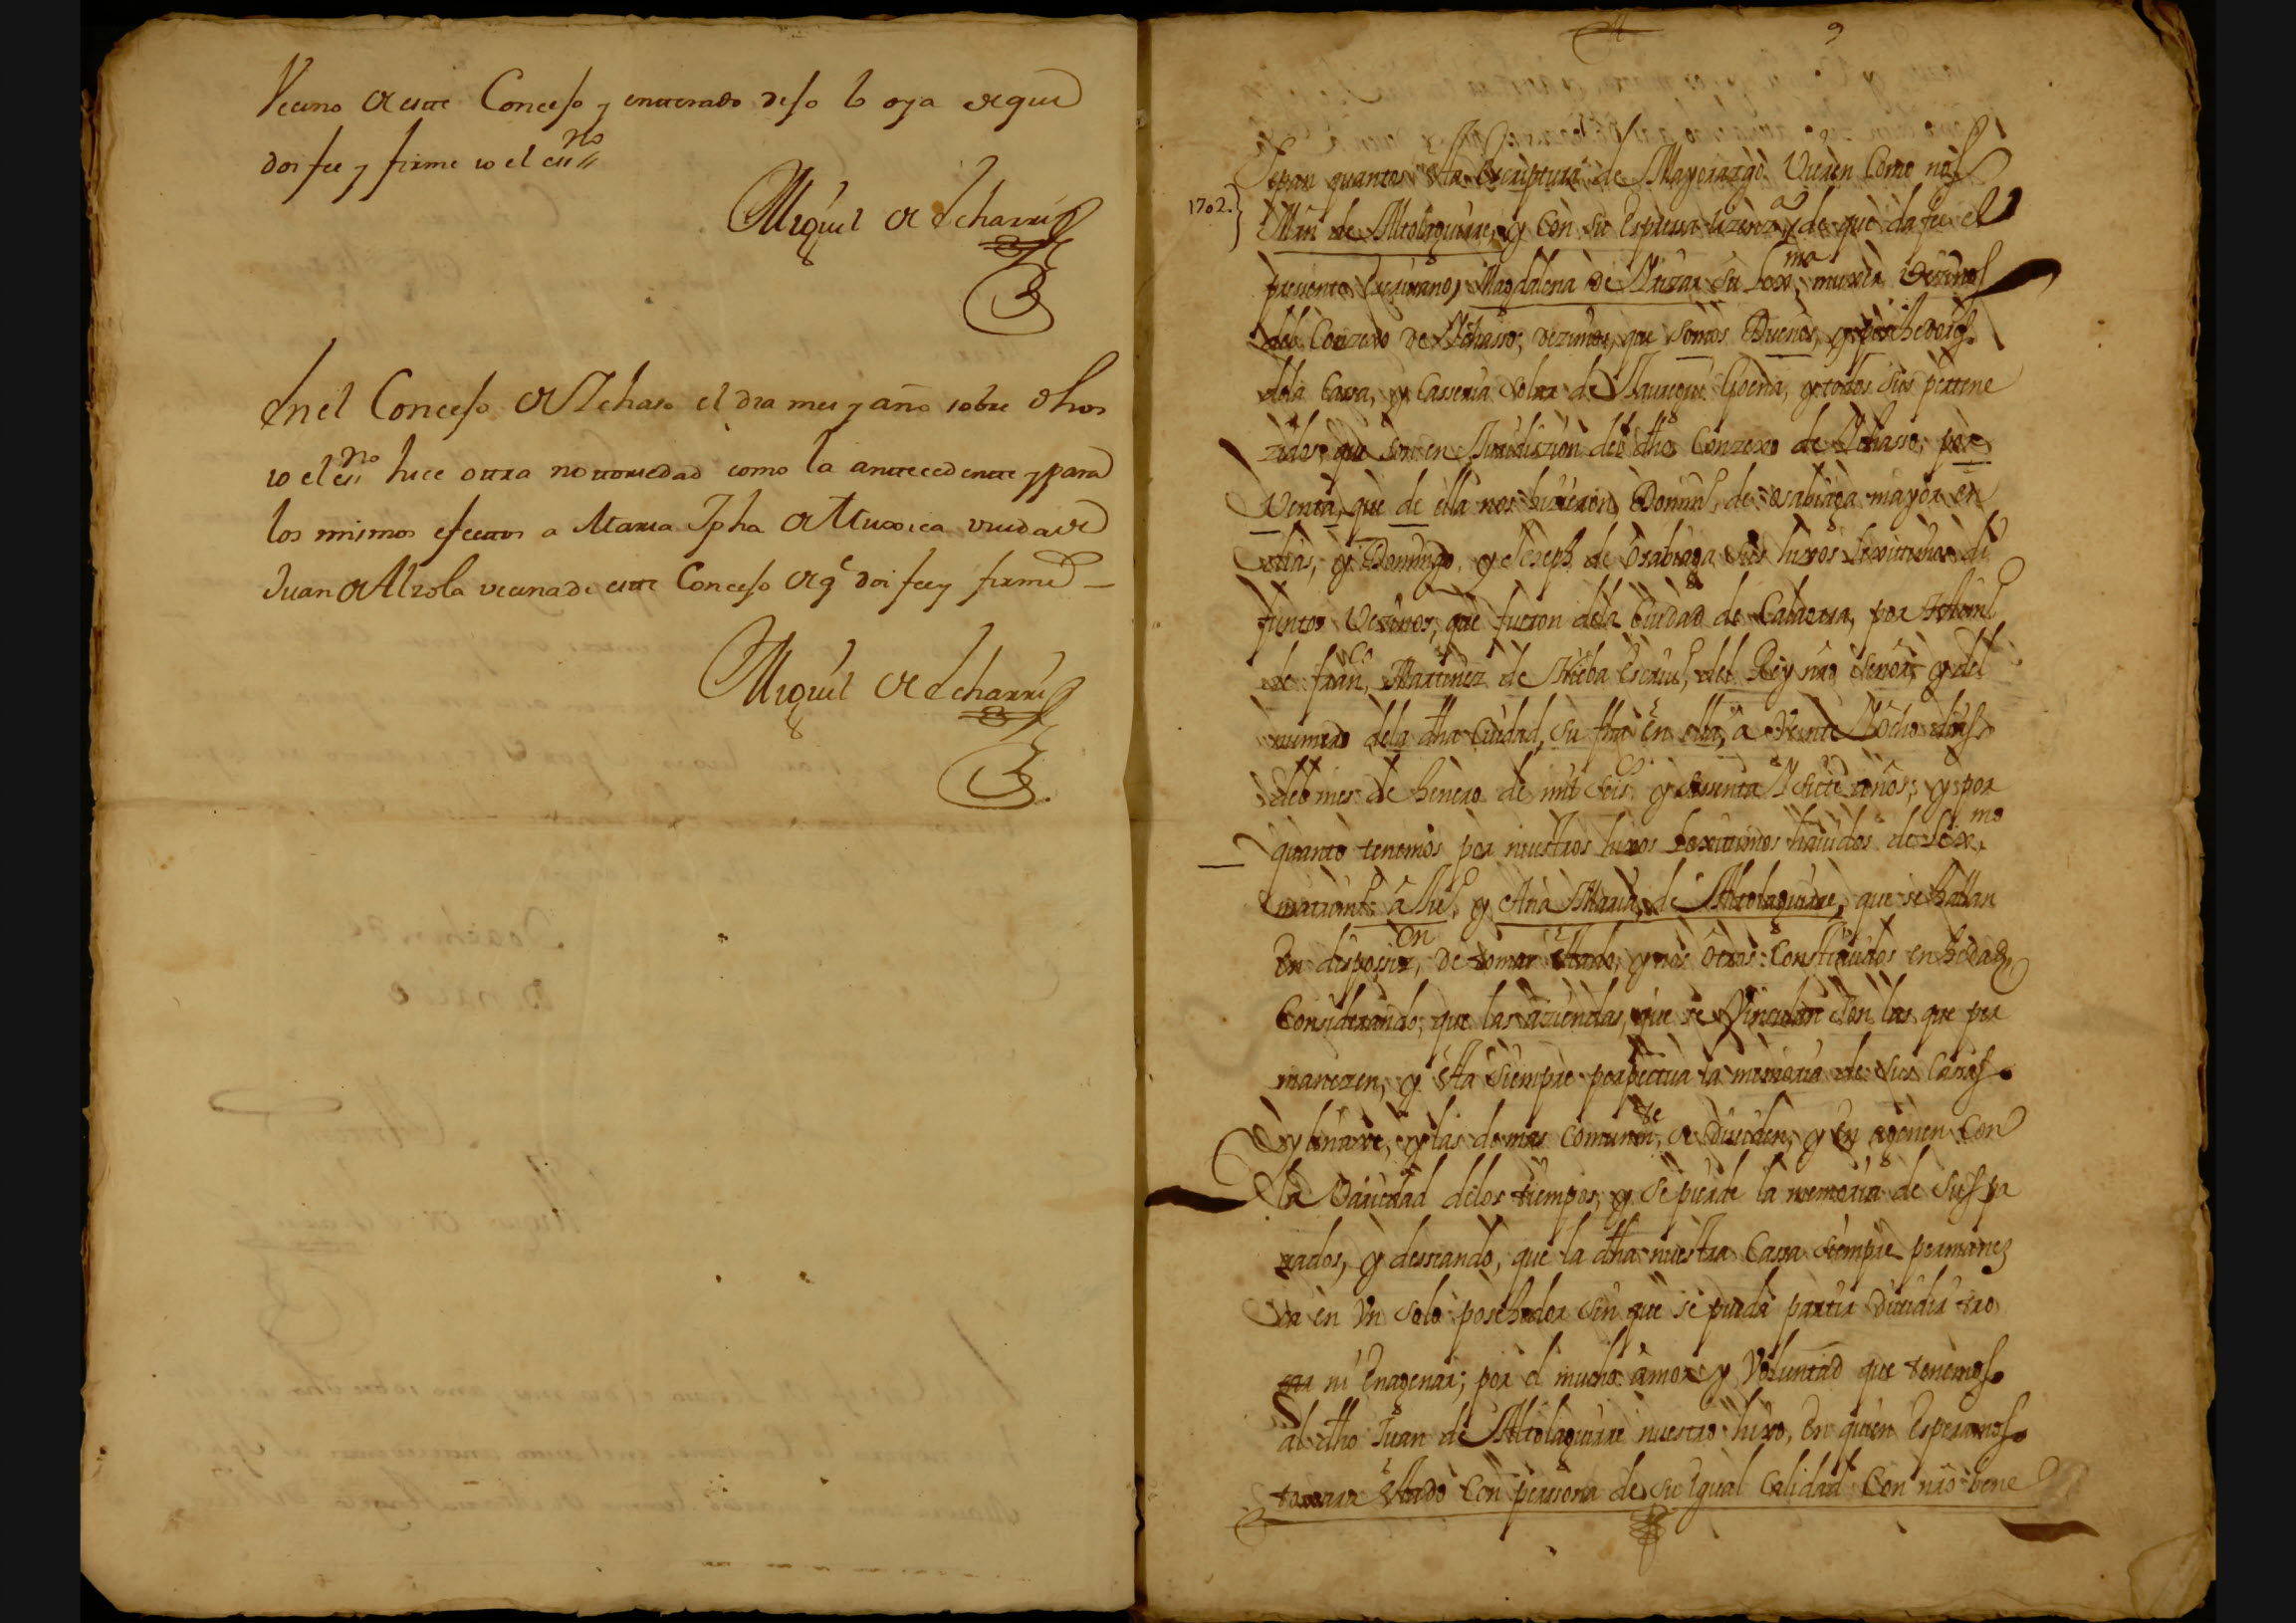 Vecino de este Concejo y enterado de so lo oya de que
doi fee y firme io el es.no
Miguel de Echarri
En el Concejo de Ichaso el dia mes y año sobre dhos
io el es.no hice otra notoriedad como la antecedente y para
los mismos efectos a Maria Jpha de Muxica viuda de
Juan de Alzola vecina de este Concejo de q.e doi fee y firme
Miguel de Echarri
9
Sepan quantos esta Escriptura de Mayorazgo Vieren Como nos
1702.
Min de Altolaguirre, y Con su Espressa lizenzia, de que da fee el
pressente Escriuano, Magdalena de su Lexma muxer Vezinos
del Conzexo de Ichasso; dezimos, que somos Dueños, y posehedores
dela Cassa, y Casseria solar de Jaureguí Goena, y todos sus pertene
zidos, que son en Jurisdizion del dho Conzexo de Ichasso, por
Venta, que de ella nos hizieron Domin.o de Osabiaga mayor en
dias, y Domingo, y Joseph de Osabiaga sus hixos lexitimos di
funtos Vezinos, que fueron dela Ciudad de Calaorra, por testim.o
de fran.co Martinez de Escriu.o del Rey nro señor, y del
numero dela dha Ciudad, su fha en ella, a Veinte y ocho dias
del mes de henero de mil seis.os y sesenta y siete años; y por
quanto tenemos por nuestros hixos lexitimos hauidos de lex.mo
matrim.o a Ju.o y Ana Maria de Altolaguirre, que se hallan
En disposizion, de tomar estado, y nos otros Constituidos en hedad,
Considerando, que las aziendas, que se Vinculan son las que per
manezen, y esta siempre perpetua la memoria de sus Cassas
y linaxe, y las demas comunmte, se Diuiden, y En agenen Con
la Variedad delos tiempos, y se pierde la memoria de sus pa
sados, y desseando, que la dha nuestra Cassa siempre permanez
ca en Vn solo posehedor sin que se pueda partir Diuidir tro
car ni Enagenar; por el mucho amor y Voluntad que tenemos
al dho Juan de Altolaguirre nuestro hixo, En quien Esperamos
tomara Estado Con persona de su igual Calidad Con nro bene